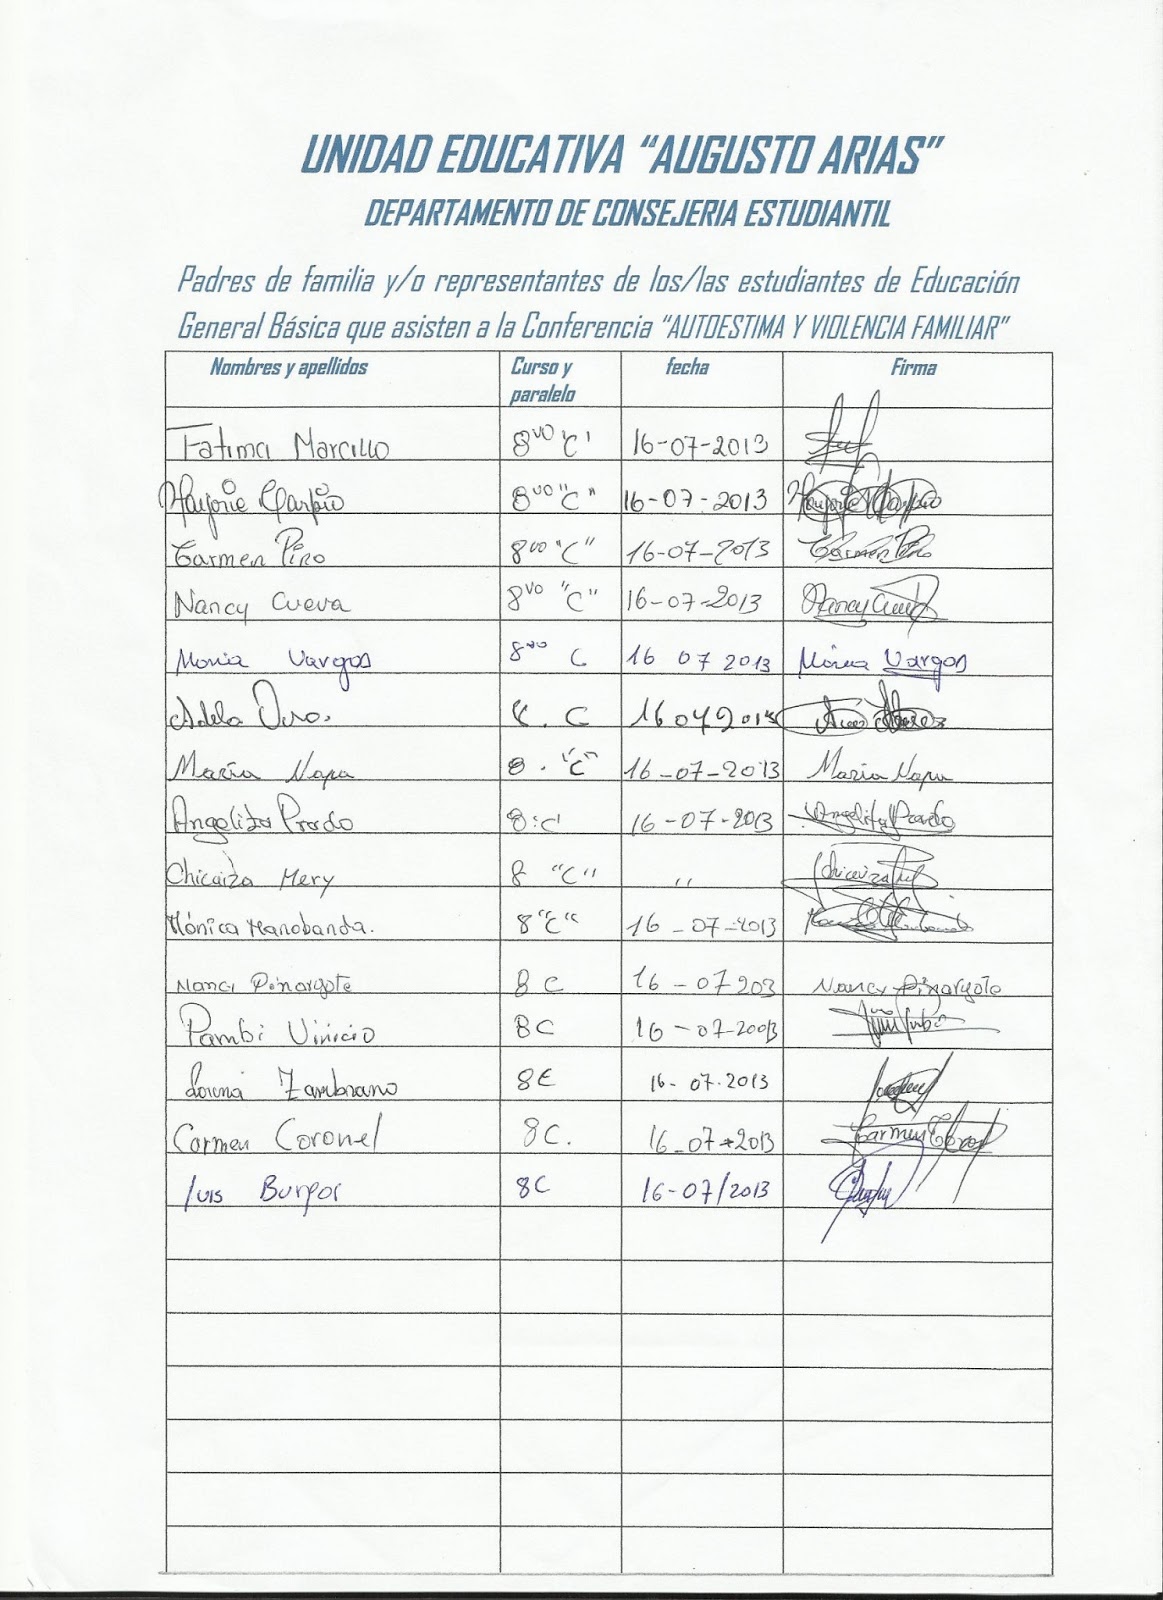 UNIDAD EDUCATIVA “AUGUSTO ARIAS”
DEPARTAMENTO DE CONSEJERIA ESTUDIANTIL
Padres de familia y/o representantes de los/las estudiantes de Educación
General Básica que asisten a la Conferencia “AUTOESTIMA Y VIOLENCIA FAMILIAR”
Nombres y apellidos Curso y paralelo fecha Firma
Fatima Marcillo 8vo 'C' 16-07-2013
Marjorie Carpio 8vo "C" 16-07-2013 Marjorie Carpio
Carmen Pino 8vo "C" 16-07-2013 Carmen Pino
Nancy Cueva 8vo "C" 16-07-2013 Nancy
Maria Vargas 8vo C 16 07 2013 Vargas
Adela 8. C 16 07 2013
Maria Napa 8. "C" 16-07-2013 Maria Napa
Angelita Prado 8:C 16-07-2013 Angelita Prado
Chicaiza Mery 8 "C" ,, Chicaiza
Mónica Manobanda. 8 "C" 16-07-2013
Nanci Pinargote 8 C 16-07 203 Nancy Pinargote
Pambi Vinicio 8C 16-07-20013
Lorena Zambrano 8E 16-07-2013
Carmen Coronel 8C. 16-07-2013 Carmen
Luis Burgos 8C 16-07/2013